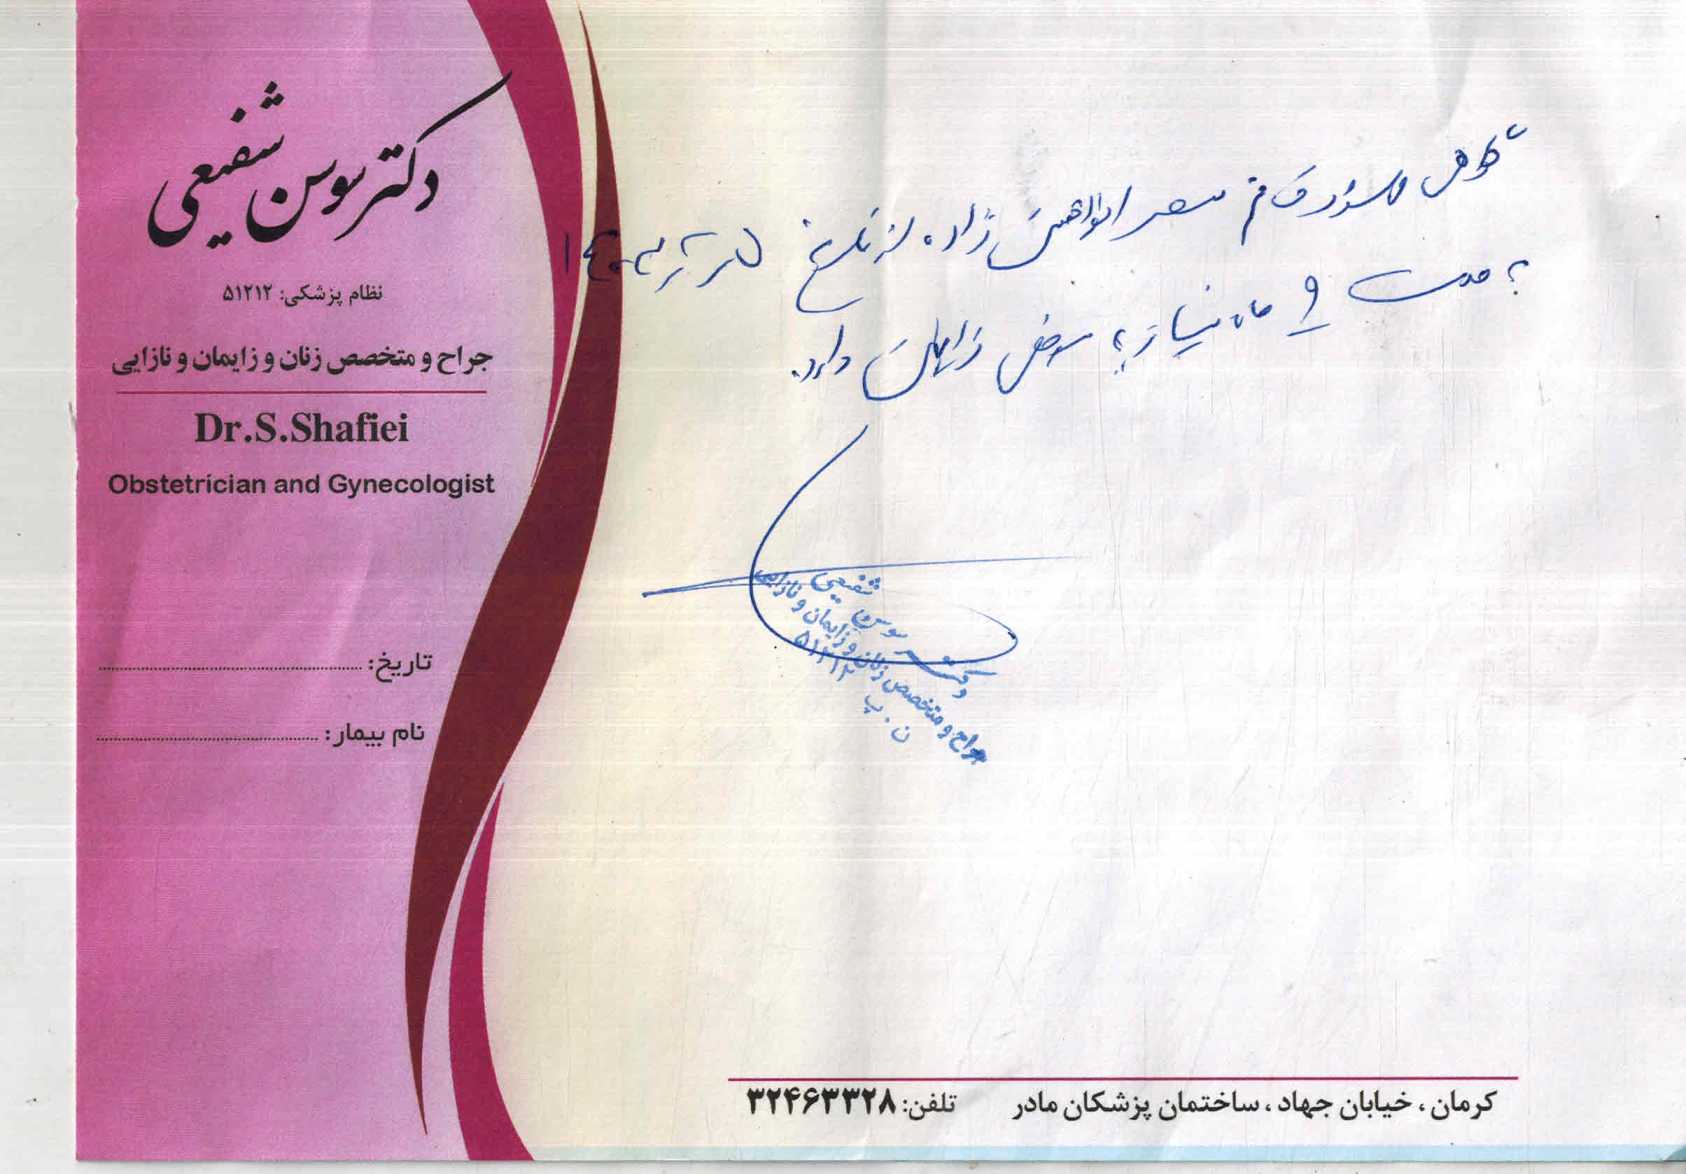 دکتر سوسن شفیعی
نظام پزشکی: ۵۱۲۱۲
جراح و متخصص زنان و زایمان و نازایی
Dr.S.Shafiei
Obstetrician and Gynecologist
تاریخ:
نام بیمار:
گواهی میشود خانم سحر ابراهیمی زاده از تاریخ
به مدت ۹ ماه نیاز به مرخصی زایمان دارد.
دکتر سوسن شفیعی
جراح و متخصص زنان و زایمان و نازایی
ن.پ ۵۱۲۱۲
کرمان ، خیابان جهاد ، ساختمان پزشکان مادر تلفن: ۳۲۴۶۳۳۲۸